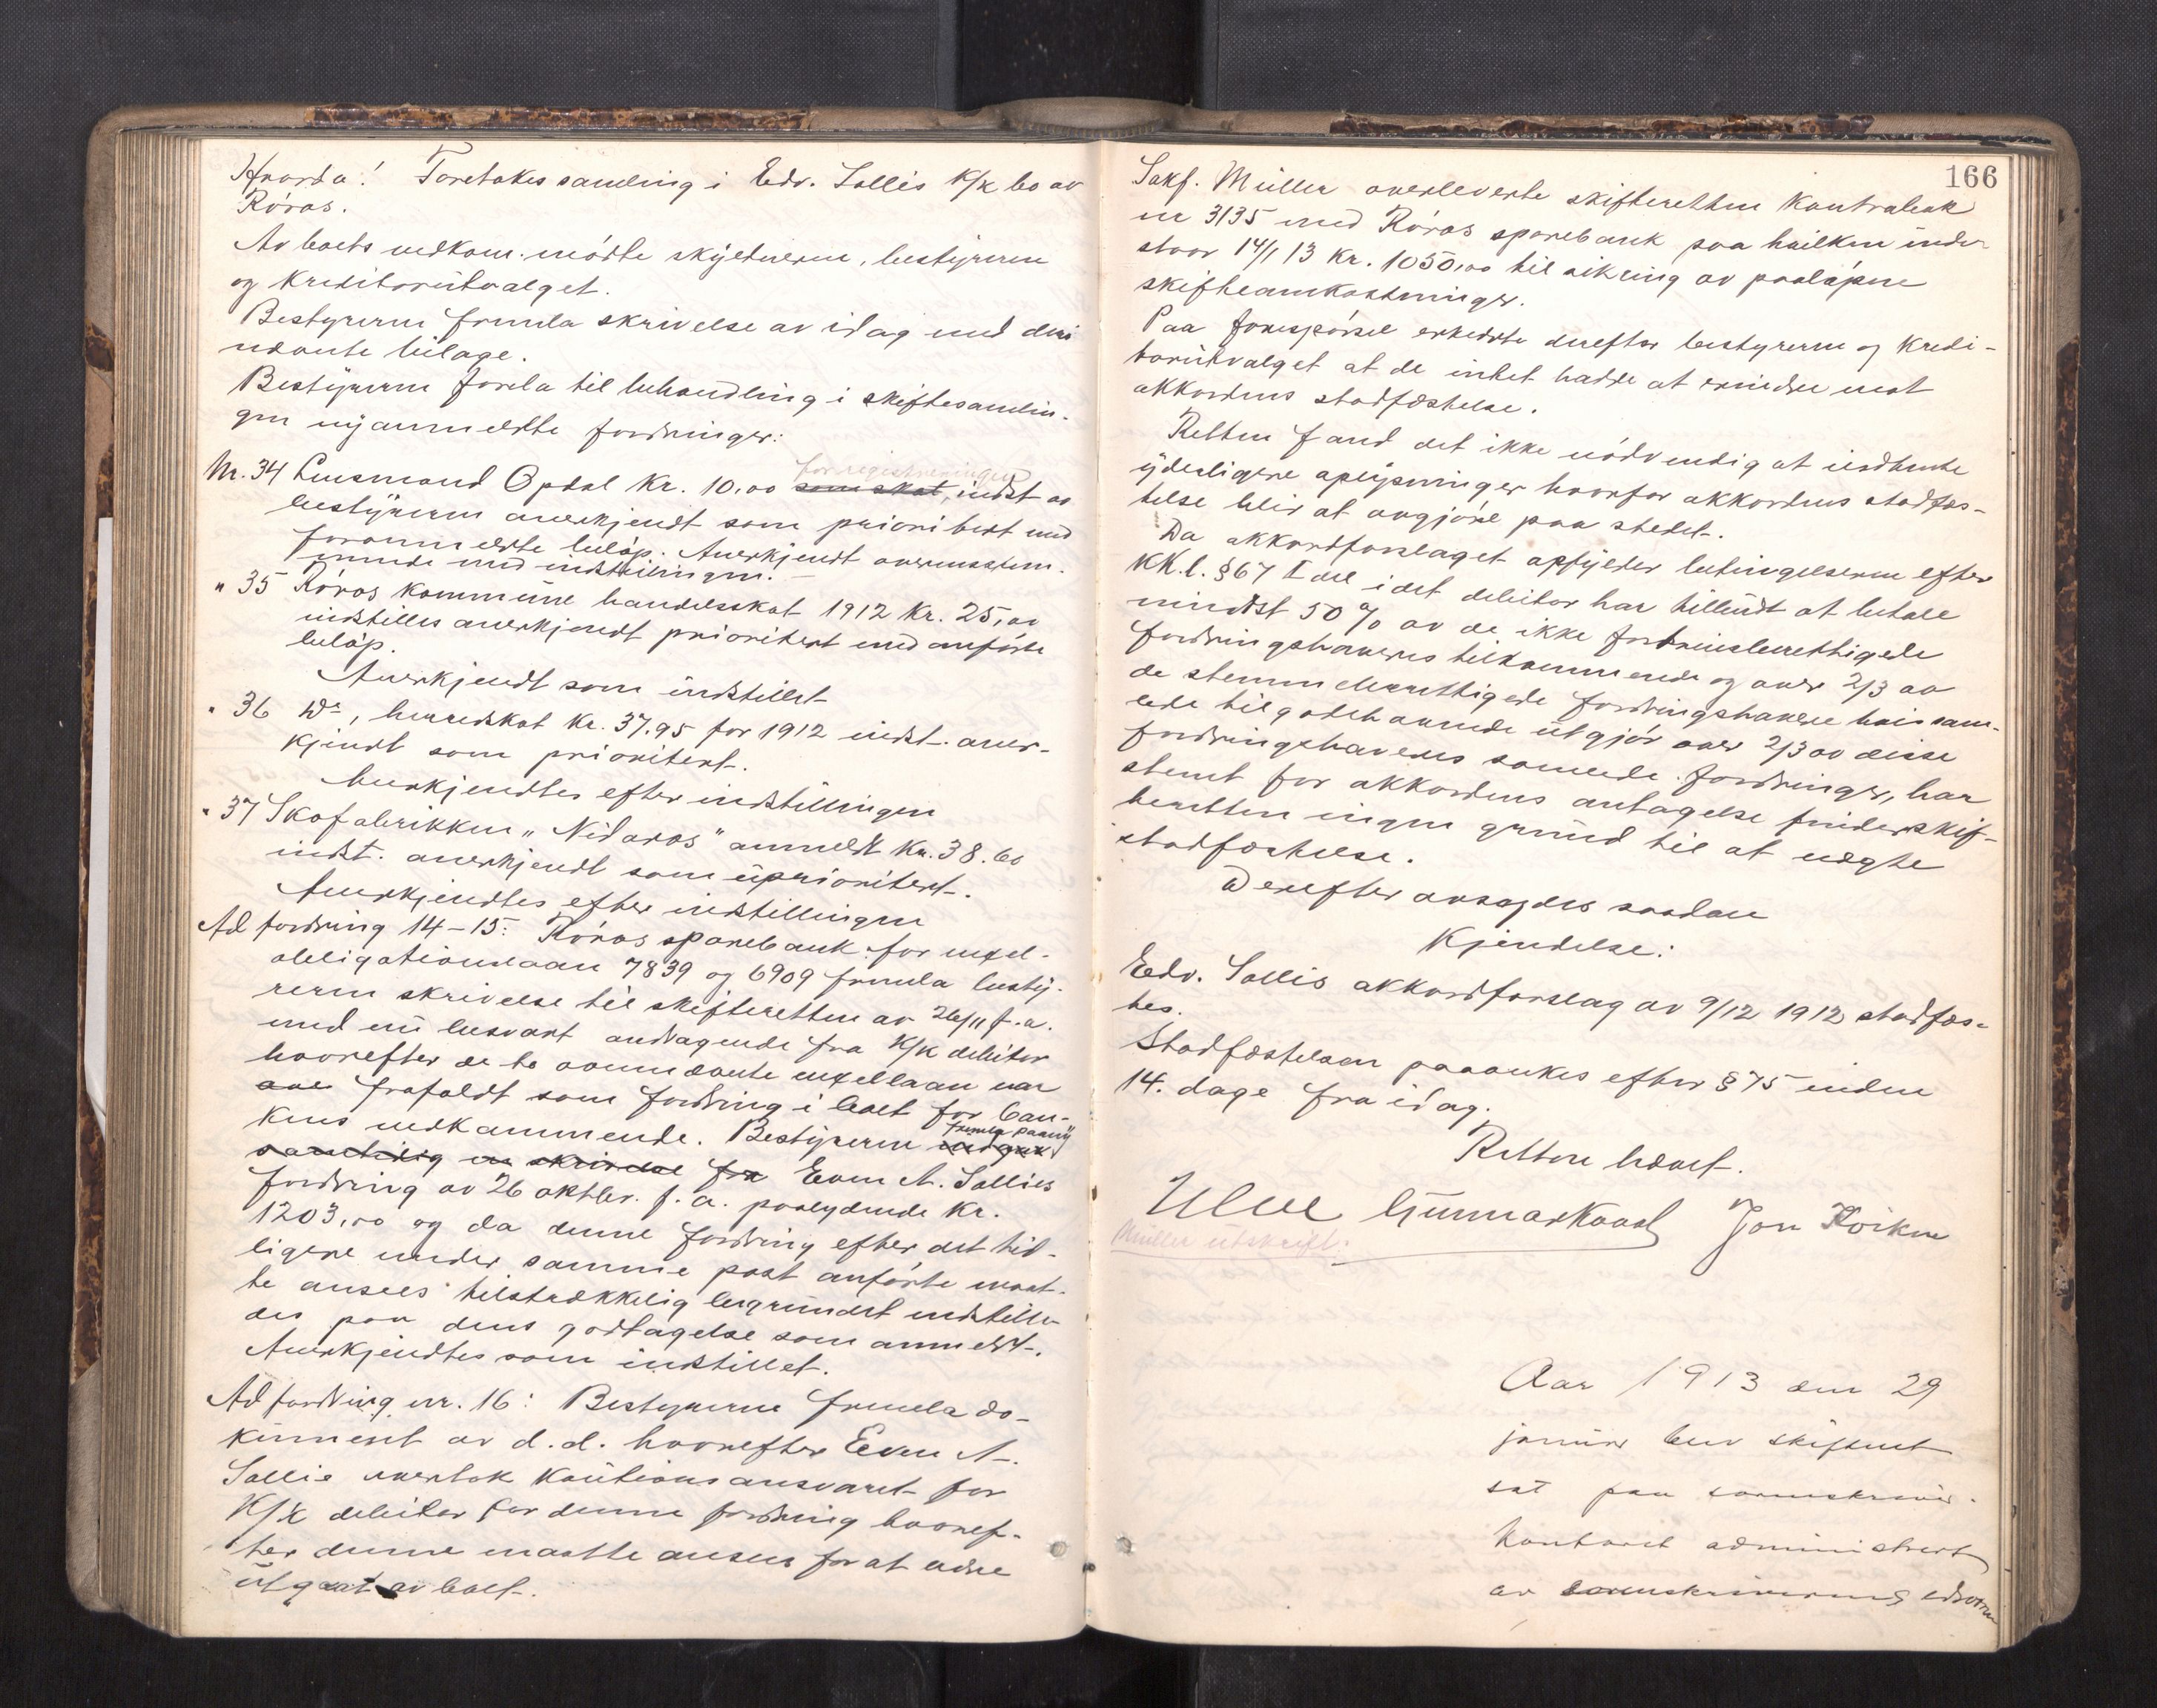 Hvorda! Foretokes samling i Edv. Sollis K/K bo av
Röros.
Av boets vedkom. mödte skyldneren, bestyreren
og Kreditorutvalget.
Bestyreren fremla skrivelse av idag med deri
nævnte bilage.
Bestyreren forela til behandling i skiftesamlin-
gen nyanmeldte fordringer:
Nr. 34 Lensmand Opdal Kr. 10,00 som skat, for registreringen indst av
bestyreren anerkjendt som prioritert med
foranmeldte belöp. Anerkjendt overensstem-
mende med indstillingen.
" 35 Röros kommune handelsskat 1912 Kr. 25,00
indstilles anerkjendt prioritert med anförte
belöp.
Anerkjendt som indstillet
" 36 Do, herredskat Kr. 37.95 for 1912 indst. aner-
kjendt som prioritert.
Anerkjendtes efter indstillingen
" 37 Skofabrikken "Nidaros" anmeldt Kr. 38.60
indst. anerkjendt som uprioritert.
Anerkjendtes efter indstillingen
Ad fordring 14-15: Röros sparebank for vexel-
obligationslaan 7839 og 6909 fremla besty-
reren skrivelse til skifteretten av 26/11 f.a.
med en besvart andragende fra K/K debitor
hvorefter de to ovennævnte vexellaan var
frafaldt som fordring i boet for ban-
kens vedkommende. Bestyreren fremla paany
samtidig en skrivelse fra Even A. Sollies
fordring av 26 oktbr. f.a. paalydende Kr.
1203,00 og da denne fordring efter det tid-
ligere under samme post anförte maat-
te ansees tilstrækkelig begrundet indstille-
des paa dens godtagelse som anmeldt.
Anerkjendtes som indstillet.
Ad fordring nr. 16: Bestyreren fremla do-
kument av d.d. hvorefter Even A.
Sollie overtok Kautionsansvaret for
K/K debitor for denne fordring hvoref-
ter denne maatte ansees for at være
utgaat av boet.
166
Sakf. Müller overleverte skifteretten Kontrabok
nr 3135 med Röros sparebank paa hvilken inde-
staar 14/1 13 Kr. 1050,00 til sikring av paalöpne
skifteomkostninger.
Paa forespörsel erklærte derefter bestyreren og Kredi-
torutvalget at de intet hadde at erindre mot
akkordens stadfæstelse.
Retten fand det ikke nödvendig at indhente
yderligere oplysninger hvorfor akkordens stadfæs-
telse blir at avgjöre paa stedet.
Da akkordforslaget opfylder betingelserne efter
KK.l. § 67 I del idet debitor har tilbudt at betale
mindst 50 % av de ikke fortrinsberettigede
fordringshaveres tilkommende og over 2/3 av
de stemmeberettigede fordringshavere hvis sam-
lede tilgodehavende utgjör over 2/3 av disse
fordringshaveres samlede fordringer, har
stemt for akkordens antagelse finder skif-
teretten ingen grund til at nægte
stadfæstelse.
Derefter avsagdes saadan
Kjendelse:
Edv. Sollis akkordforslag av 9/12 1912 stadfæs-
tes.
Stadfæstelsen paaankes efter § 75 inden
14. dage fra idag.
Retten hævet.
Gunnar Kaal Jon Kvikne
Müller utskrift.
Aar 1913 den 29
januar blev skifteret
sat paa sorenskriver-
kontoret administrert
av sorenskriverens edsvorne